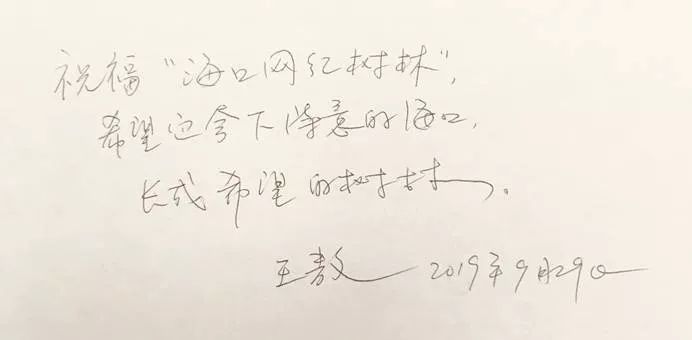 祝福“海口网红树林”，
希望这夸下诗意的海口，
长成希望的树林。
王敖 2019年9月29日